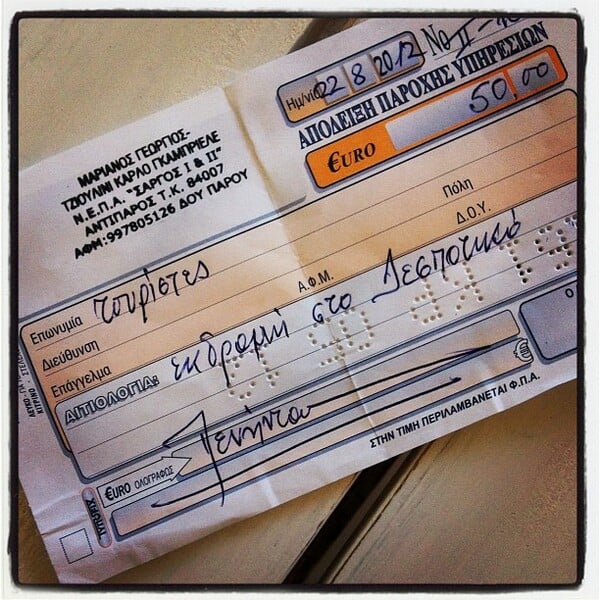 ΜΑΡΙΑΝΟΣ ΓΕΩΡΓΙΟΣ-
ΤΖΙΟΥΛΙΝΙ ΚΑΡΛΟ ΓΚΑΜΠΡΙΕΛΕ
Ν.Ε.Π.Α. "ΣΑΡΓΟΣ Ι & ΙΙ"
ΑΝΤΙΠΑΡΟΣ Τ.Κ. 84007
ΑΦΜ:997805126 ΔΟΥ ΠΑΡΟΥ
Ημ/νία 22 8 2012 Νο ΙΙ-
ΑΠΟΔΕΙΞΗ ΠΑΡΟΧΗΣ ΥΠΗΡΕΣΙΩΝ
€URO 50,00
Επωνυμία τουρίστες
Διεύθυνση Πόλη
Επάγγελμα Α.Φ.Μ. Δ.Ο.Υ.
ΑΙΤΙΟΛΟΓΙΑ: εκδρομή στο Δεσποτικό
€URO ΟΛΟΓΡΑΦΩΣ Πενήντα
ΣΤΗΝ ΤΙΜΗ ΠΕΡΙΛΑΜΒΑΝΕΤΑΙ Φ.Π.Α.